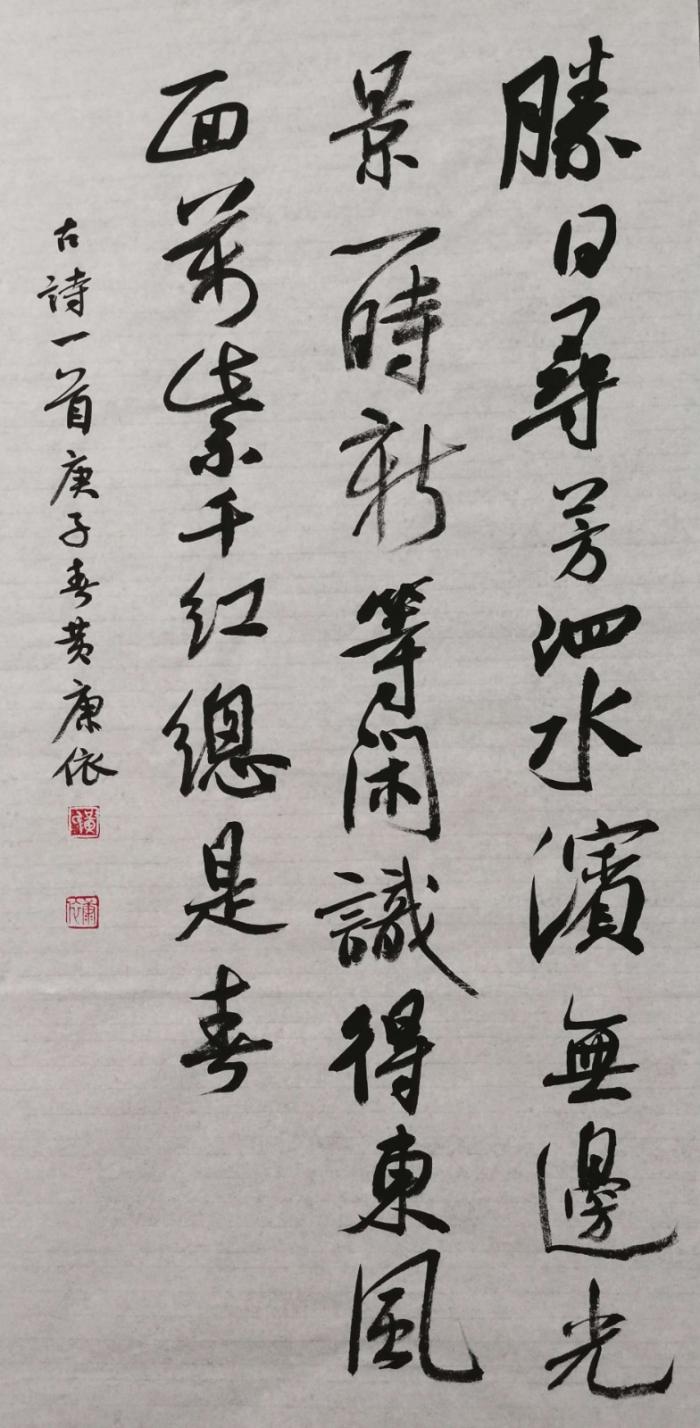 勝日尋芳泗水濱無邊光
景一時新等閑識得東風
面萬紫千紅總是春
古詩一首庚子春黄康依